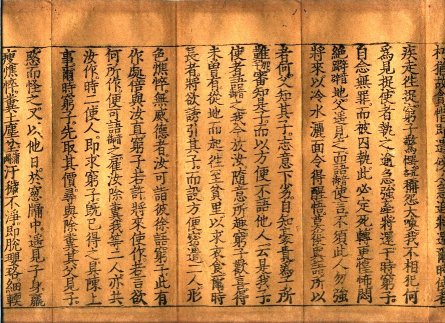 疾走往捉窮子驚愕稱怨大喚我不相犯何
為見捉使者執之逾急強牽將還于時窮子
自念無罪而被囚執此必定死轉更惶怖悶
絕躄地父遙見之而語使言不須此人勿強
將來以冷水灑面令得醒悟莫復與語所以
者何父知其子志意下劣自知豪貴為子所
難審知是子而以方便不語他人云是我子
使者語之我今放汝隨意所趣窮子歡喜得
未曾有從地而起往至貧里以求衣食爾時
長者將欲誘引其子而設方便密遣二人形
色憔悴無威德者汝可詣彼徐語窮子此有
作處倍與汝直窮子若許將來使作若言欲
何所作便可語之雇汝除糞我等二人亦共
汝作時二使人即求窮子既已得之具陳上
事爾時窮子先取其價尋與除糞其父見子
愍而怪之又以他日於窓牖中遙見子身羸
瘦憔悴糞土塵坌汙穢不淨即脫瓔珞細軟